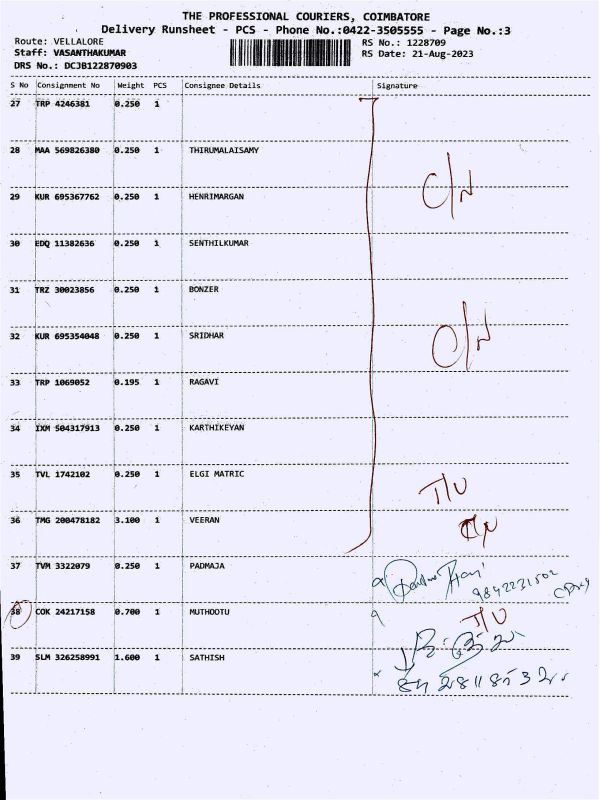 THE PROFESSIONAL COURIERS, COIMBATORE
Delivery Runsheet - PCS - Phone No.:0422-3505555 - Page No.:3
Route: VELLALORE
Staff: VASANTHAKUMAR
DRS No.: DCJB122870903
RS No.: 1228709
RS Date: 21-Aug-2023
S No Consignment No Weight PCS Consignee Details Signature
27 TRP 4246381 0.250 1
28 MAA 569826380 0.250 1 THIRUMALAISAMY
C/N
29 KUR 695367762 0.250 1 HENRIMARGAN
30 EDQ 11382636 0.250 1 SENTHILKUMAR
31 TRZ 30023856 0.250 1 BONZER
32 KUR 695354048 0.250 1 SRIDHAR
C/N
33 TRP 1069052 0.195 1 RAGAVI
34 IXM 504317913 0.250 1 KARTHIKEYAN
35 TVL 1742102 0.250 1 ELGI MATRIC
T/U
36 TMG 200478182 3.100 1 VEERAN
37 TVM 3322079 0.250 1 PADMAJA
38 COK 24217158 0.700 1 MUTHOOTU
T/U
39 SLM 326258991 1.600 1 SATHISH